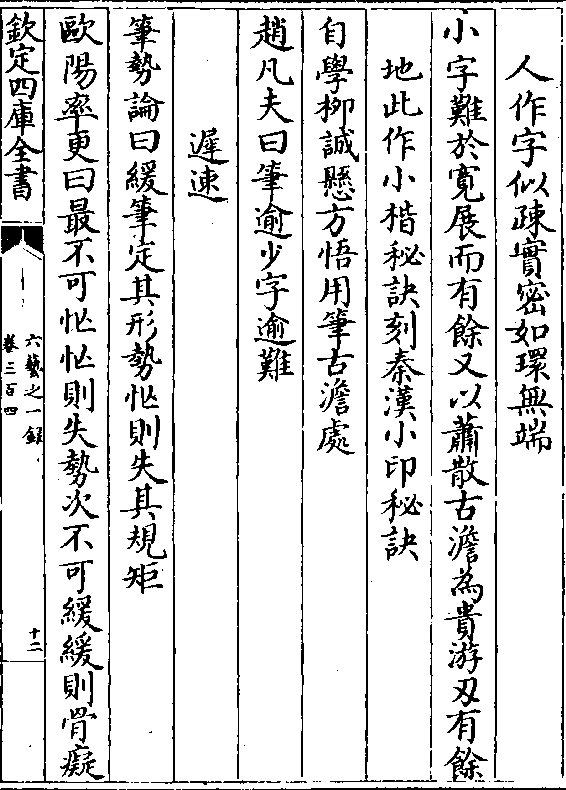 人作字似疎實密如環無端
小字難於寛展而有餘又以蕭散古澹為貴游刃有餘
地此作小楷秘訣刻秦漢小印秘訣
自學柳誠懸方悟用筆古澹處
趙凡夫曰筆逾少字逾難
遲速
筆勢論曰緩筆定其形勢怭則失其規矩
歐陽率更曰最不可怭怭則失勢次不可緩緩則骨癡
欽定四庫全書
六藝之一録
卷三百四
十二